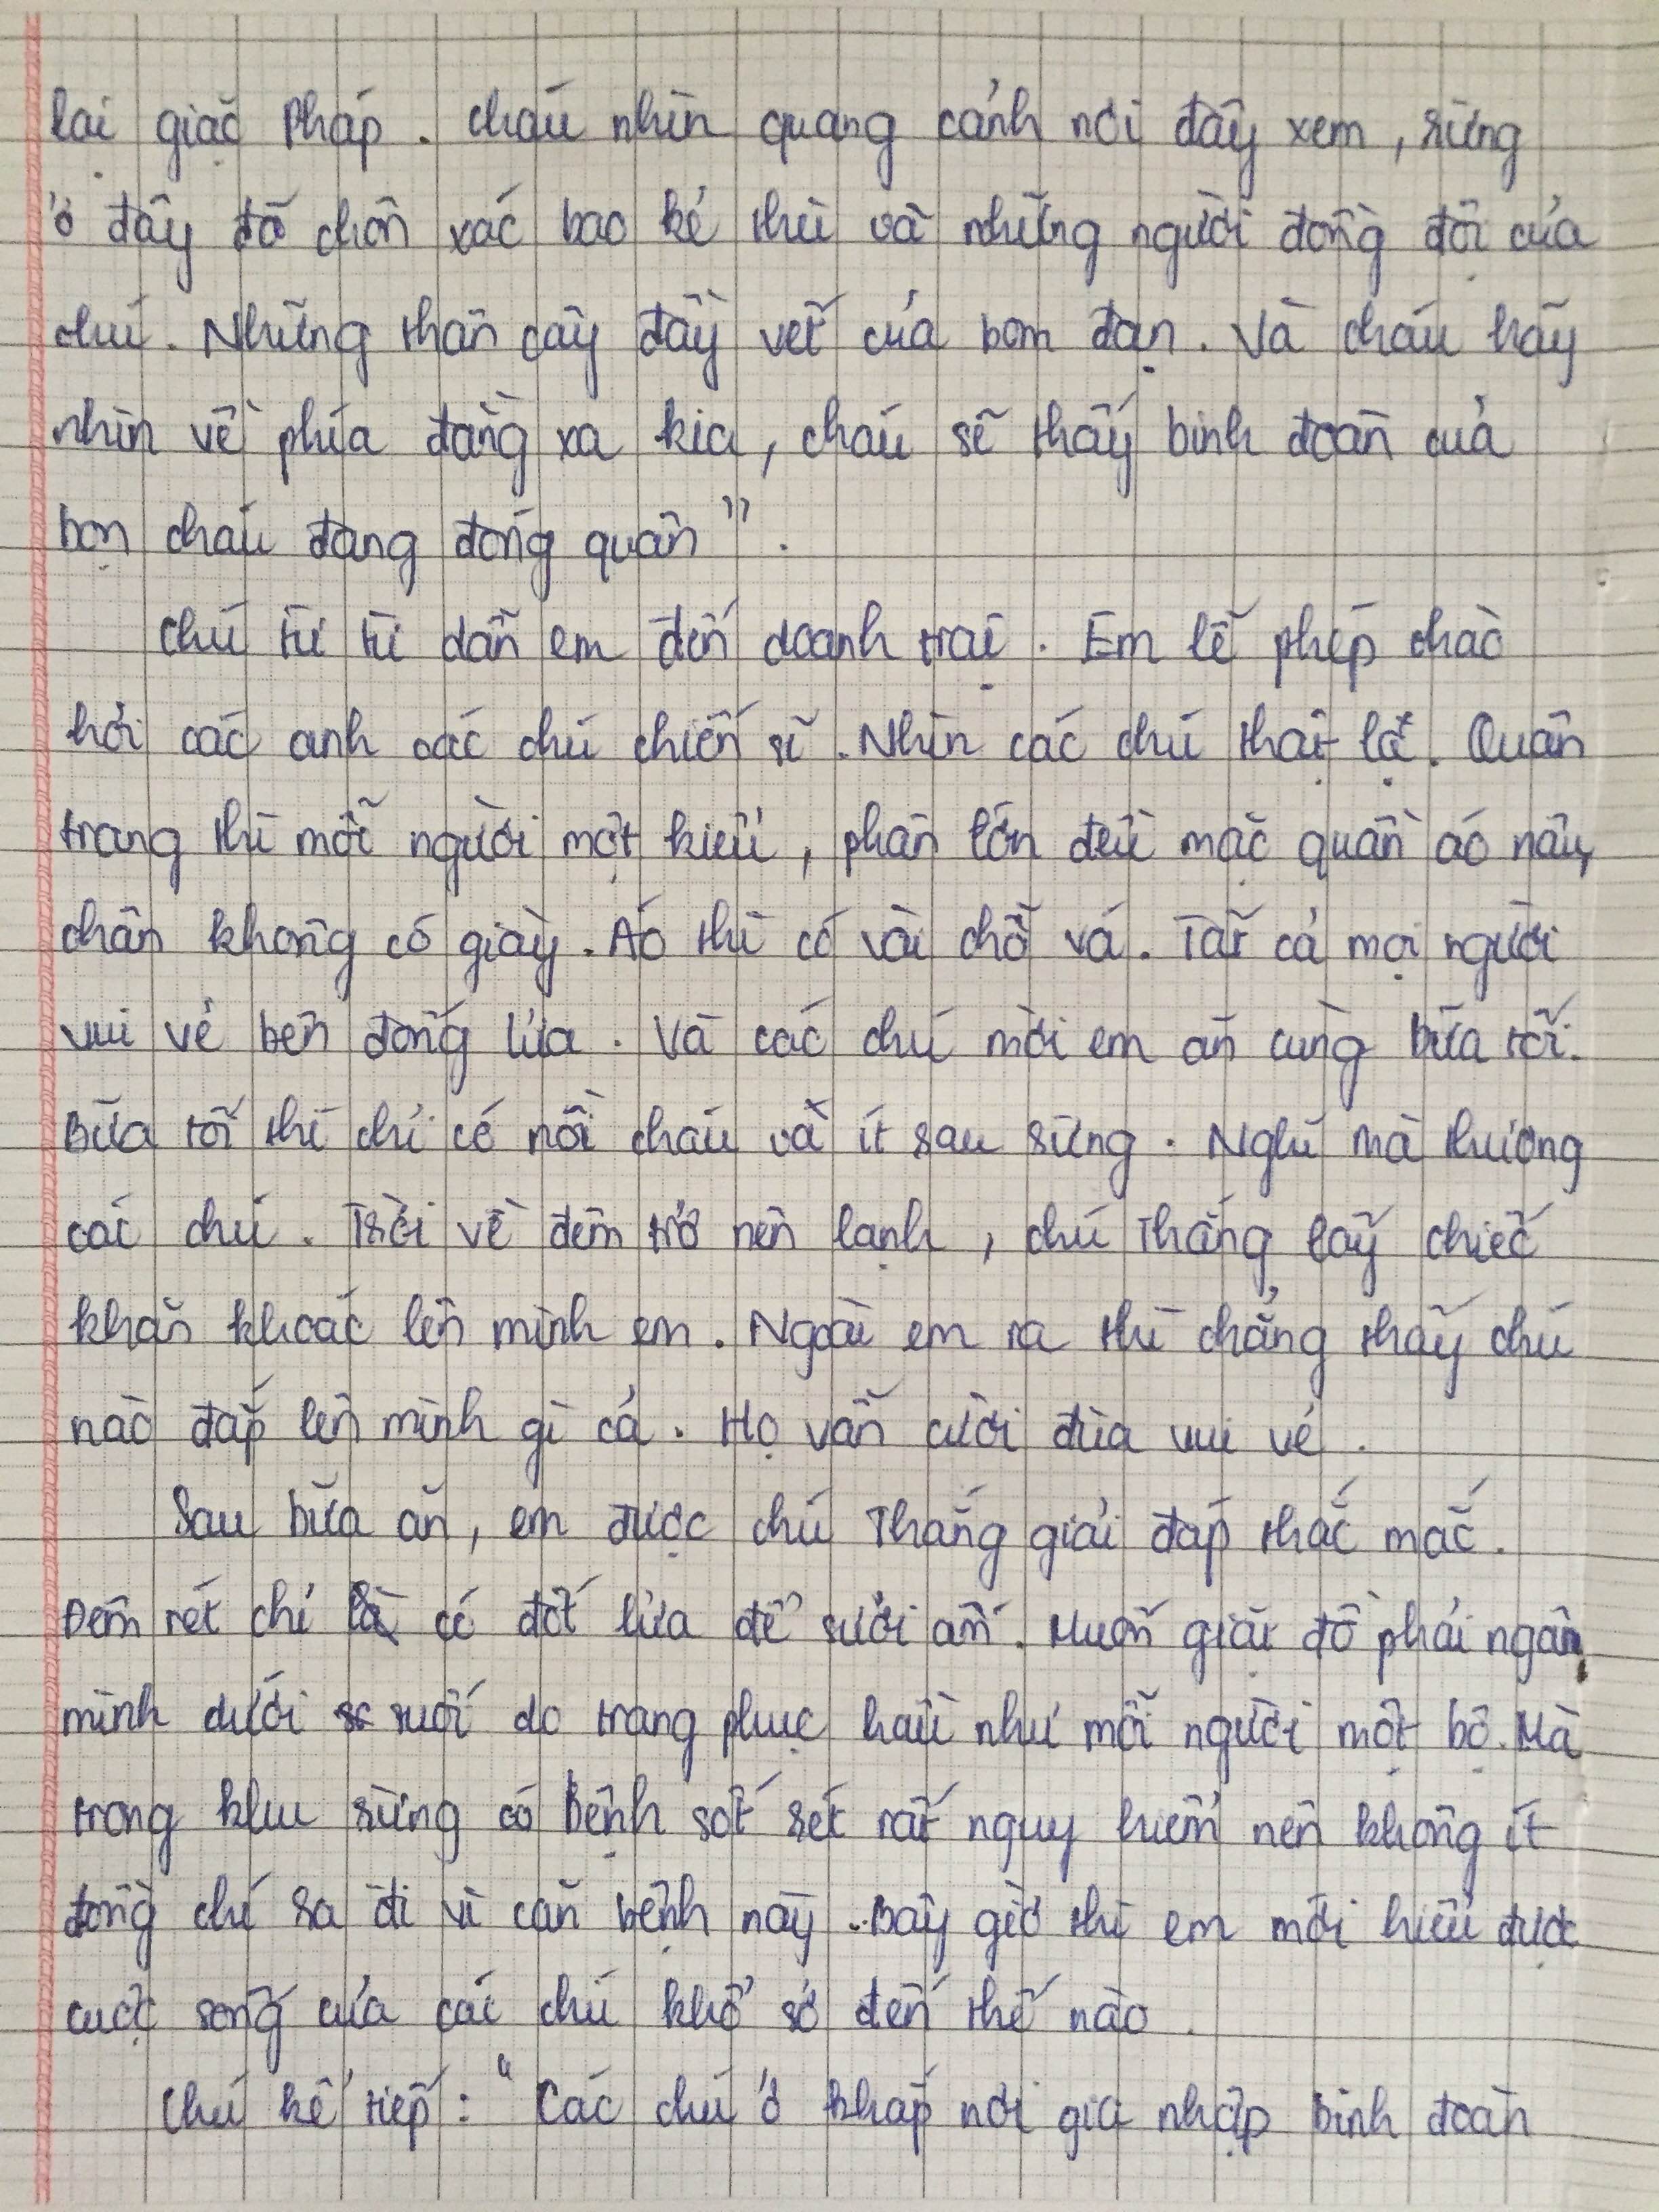 lại giặc Pháp. cháu nhìn quang cảnh nơi đây xem, rừng
ở đây đã chôn xác bao kẻ thù và những người đồng đội của
chú. Những thân cây đầy vết của bom đạn. Và cháu hãy
nhìn về phía đằng xa kia, cháu sẽ thấy binh đoàn của
bọn cháu đang đóng quân".
Chú từ từ dẫn em đến doanh trại. Em lễ phép chào
hỏi các anh các chú chiến sĩ. Nhìn các chú thật lạ. Quân
trang thì mỗi người một kiểu, phần lớn đều mặc quần áo nâu,
chân không có giày. Áo thì có vài chỗ vá. Tất cả mọi người
vui vẻ bên đống lửa. Và các chú mời em ăn cùng bữa tối.
Bữa tối thì chỉ có nồi cháu và ít rau rừng. Nghĩ mà thương
các chú. Trời về đêm trở nên lạnh, chú Thắng lấy chiếc
khăn khoác lên mình em. Ngoài em ra thì chẳng thấy chú
nào đắp lên mình gì cả. Họ vẫn cười đùa vui vẻ.
Sau bữa ăn, em được chú Thắng giải đáp thắc mắc.
Đêm rét chỉ có đốt lửa để sưởi ấm. Muốn giặt đồ phải ngâm
mình dưới suối do trang phục hầu như mỗi người một bộ. Mà
trong khu rừng có bệnh sốt rét rất nguy hiểm nên không ít
đồng chí ra đi vì căn bệnh này. Bây giờ thì em mới hiểu được
cuộc sống của các chú khổ sở đến thế nào.
Chú kể tiếp: "Các chú ở khắp nơi gia nhập binh đoàn